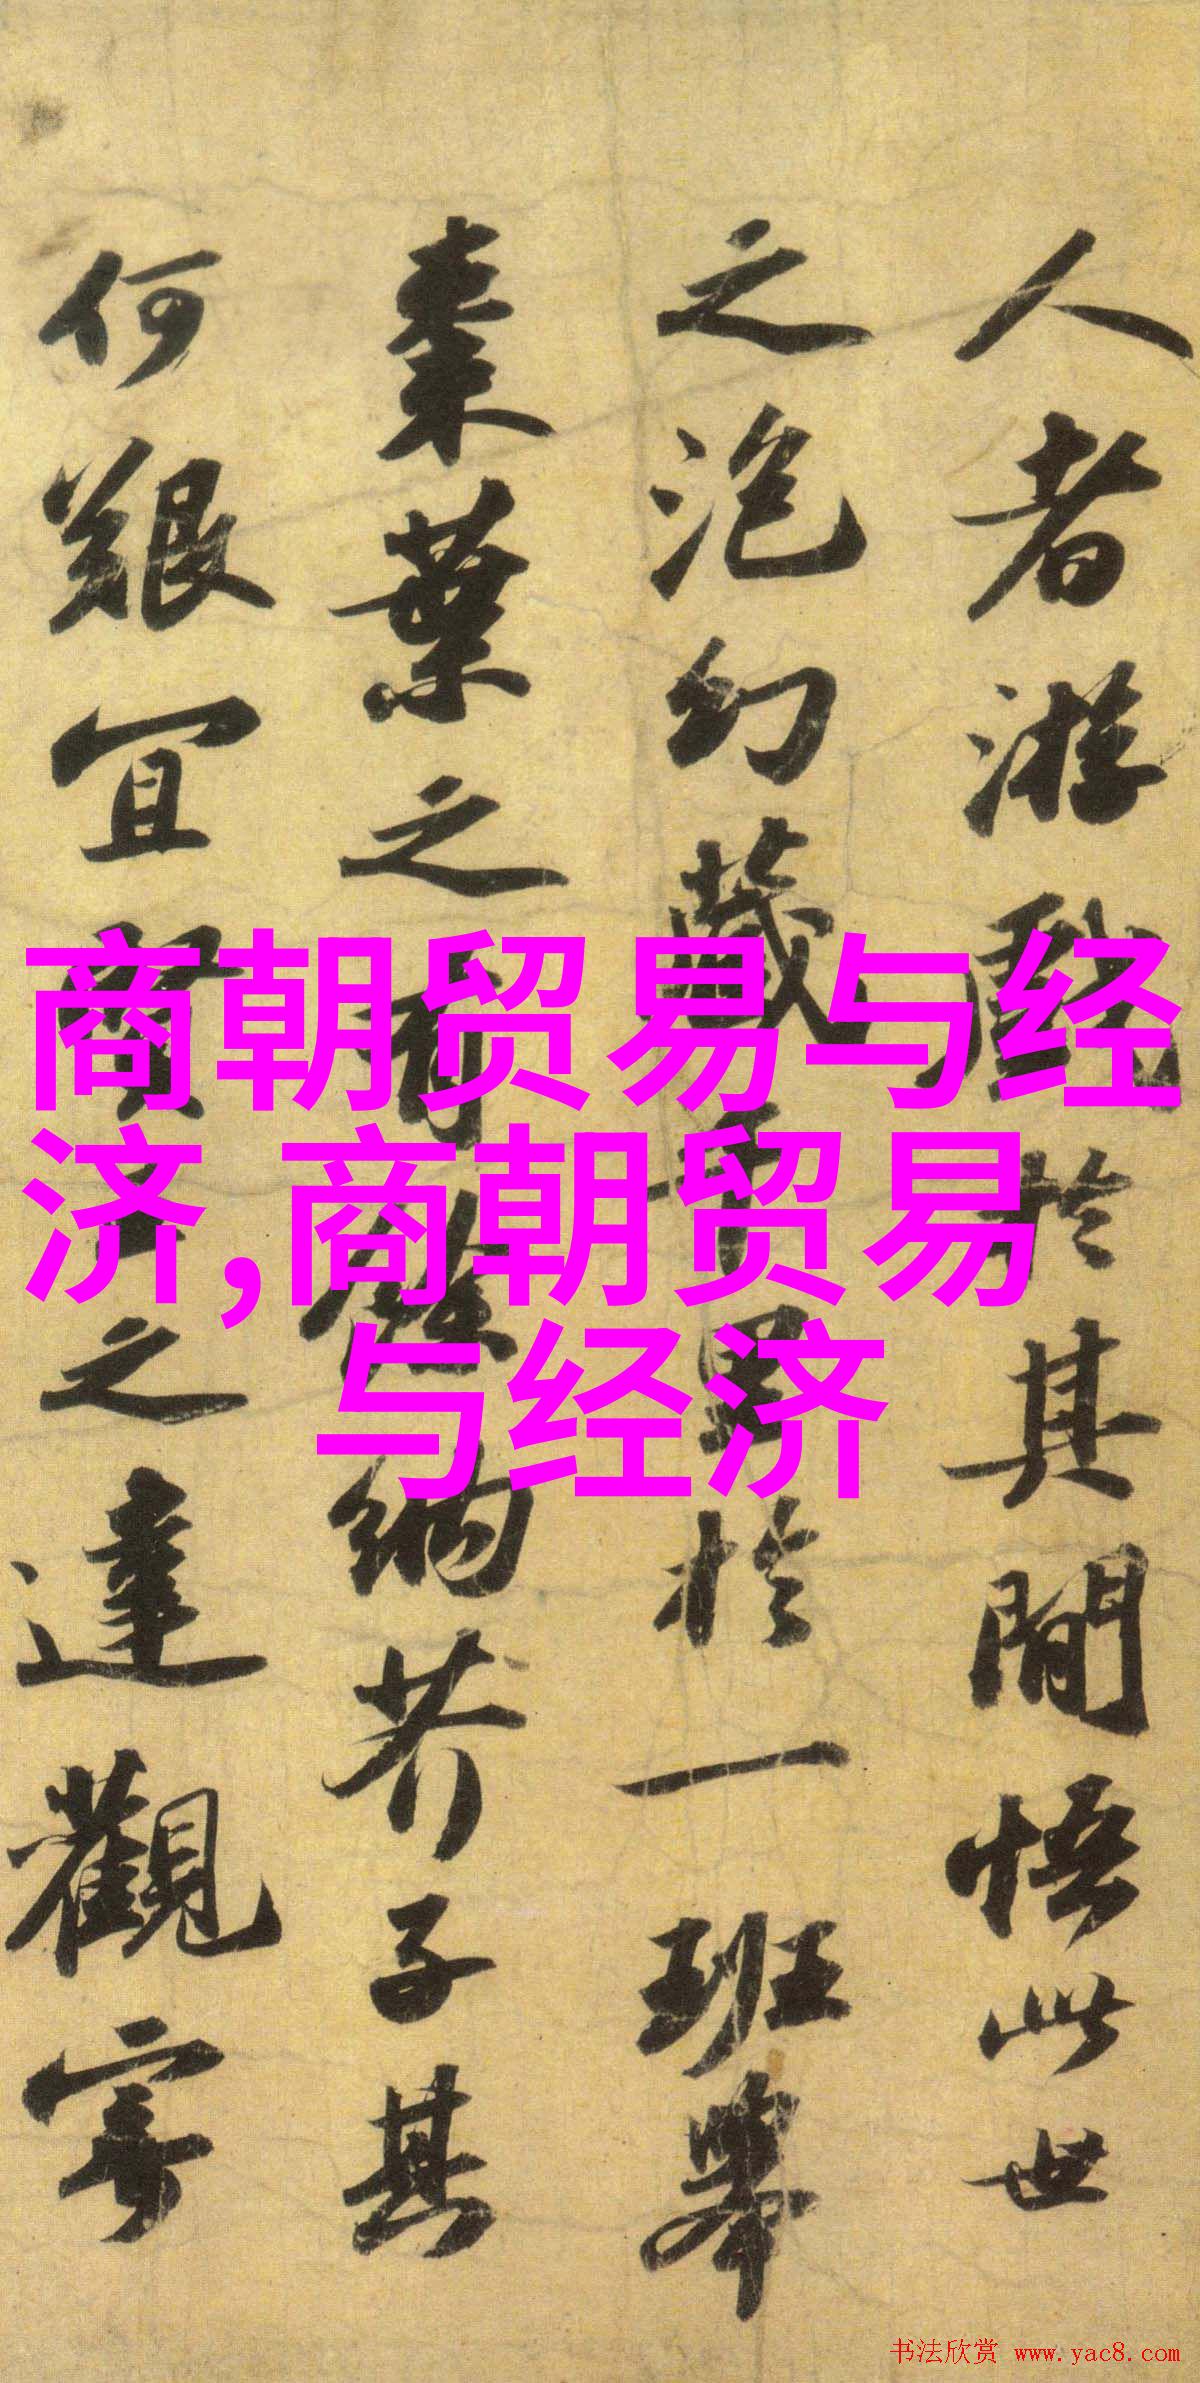 人者游戲於其間悟此世
之泡幻藏千里於一班舉
棗葉之有餘納芥子其
何艱宜賢王之達觀寄
商朝贸易与经
济,商朝贸易
与经济
书法欣赏 www.yac8.com